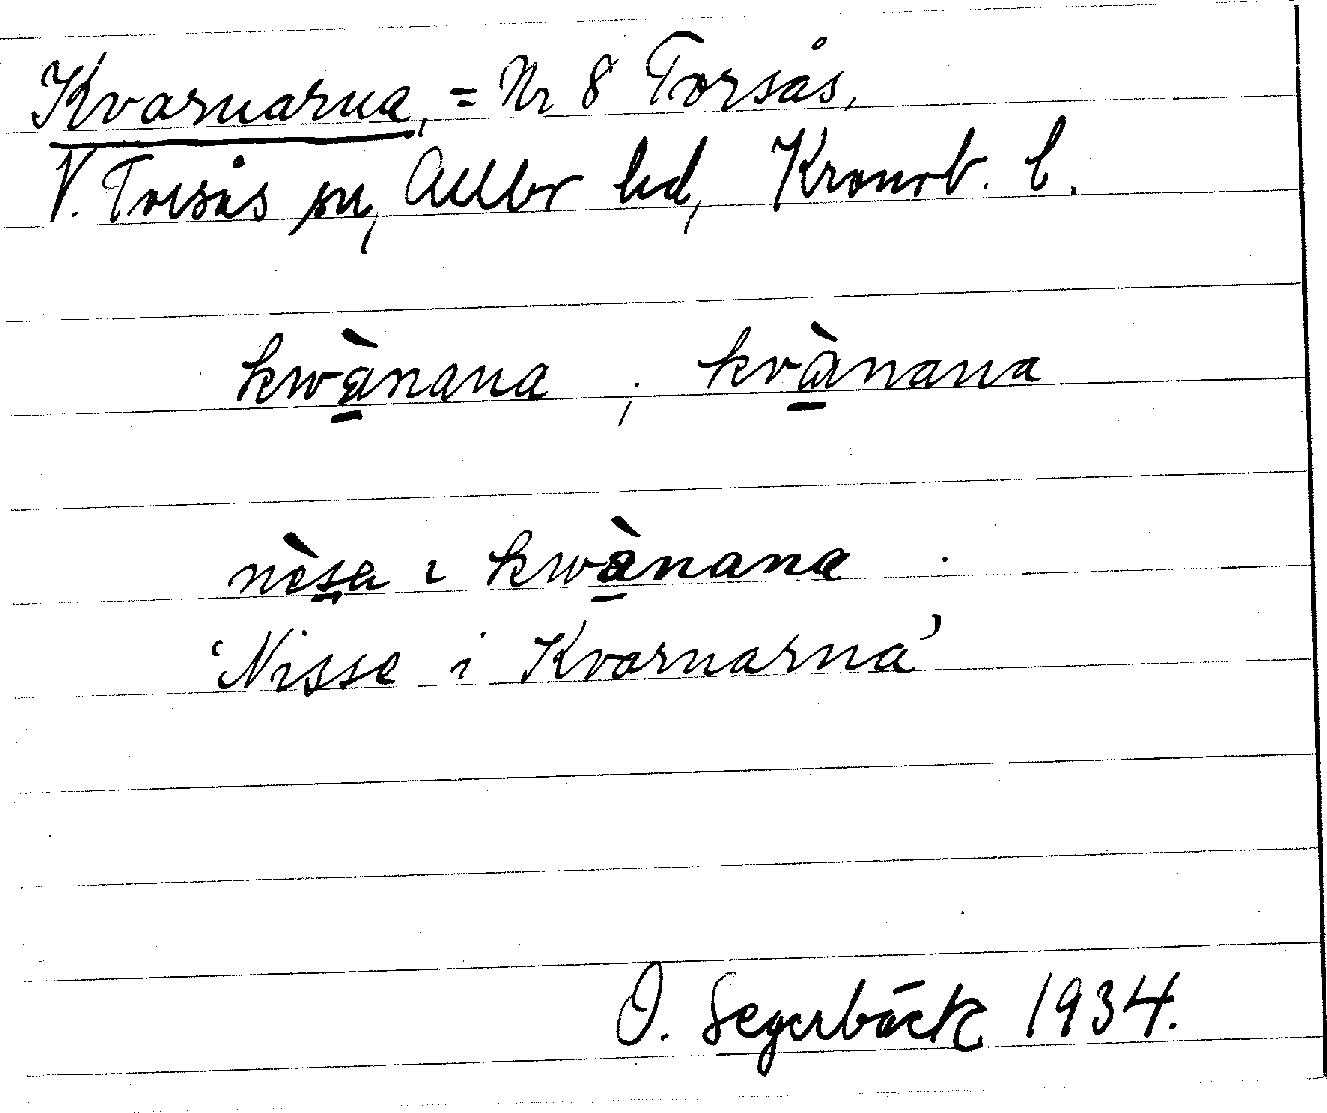 Kvarnarna, = Nr 8 Torsås,
V. Torsås sn, Allbo hd, Kronob. l.
kwànana ; kvànana
nèsa ı kwànana
'Nisse i Kvarnarna'
O. Segerbäck 1934.